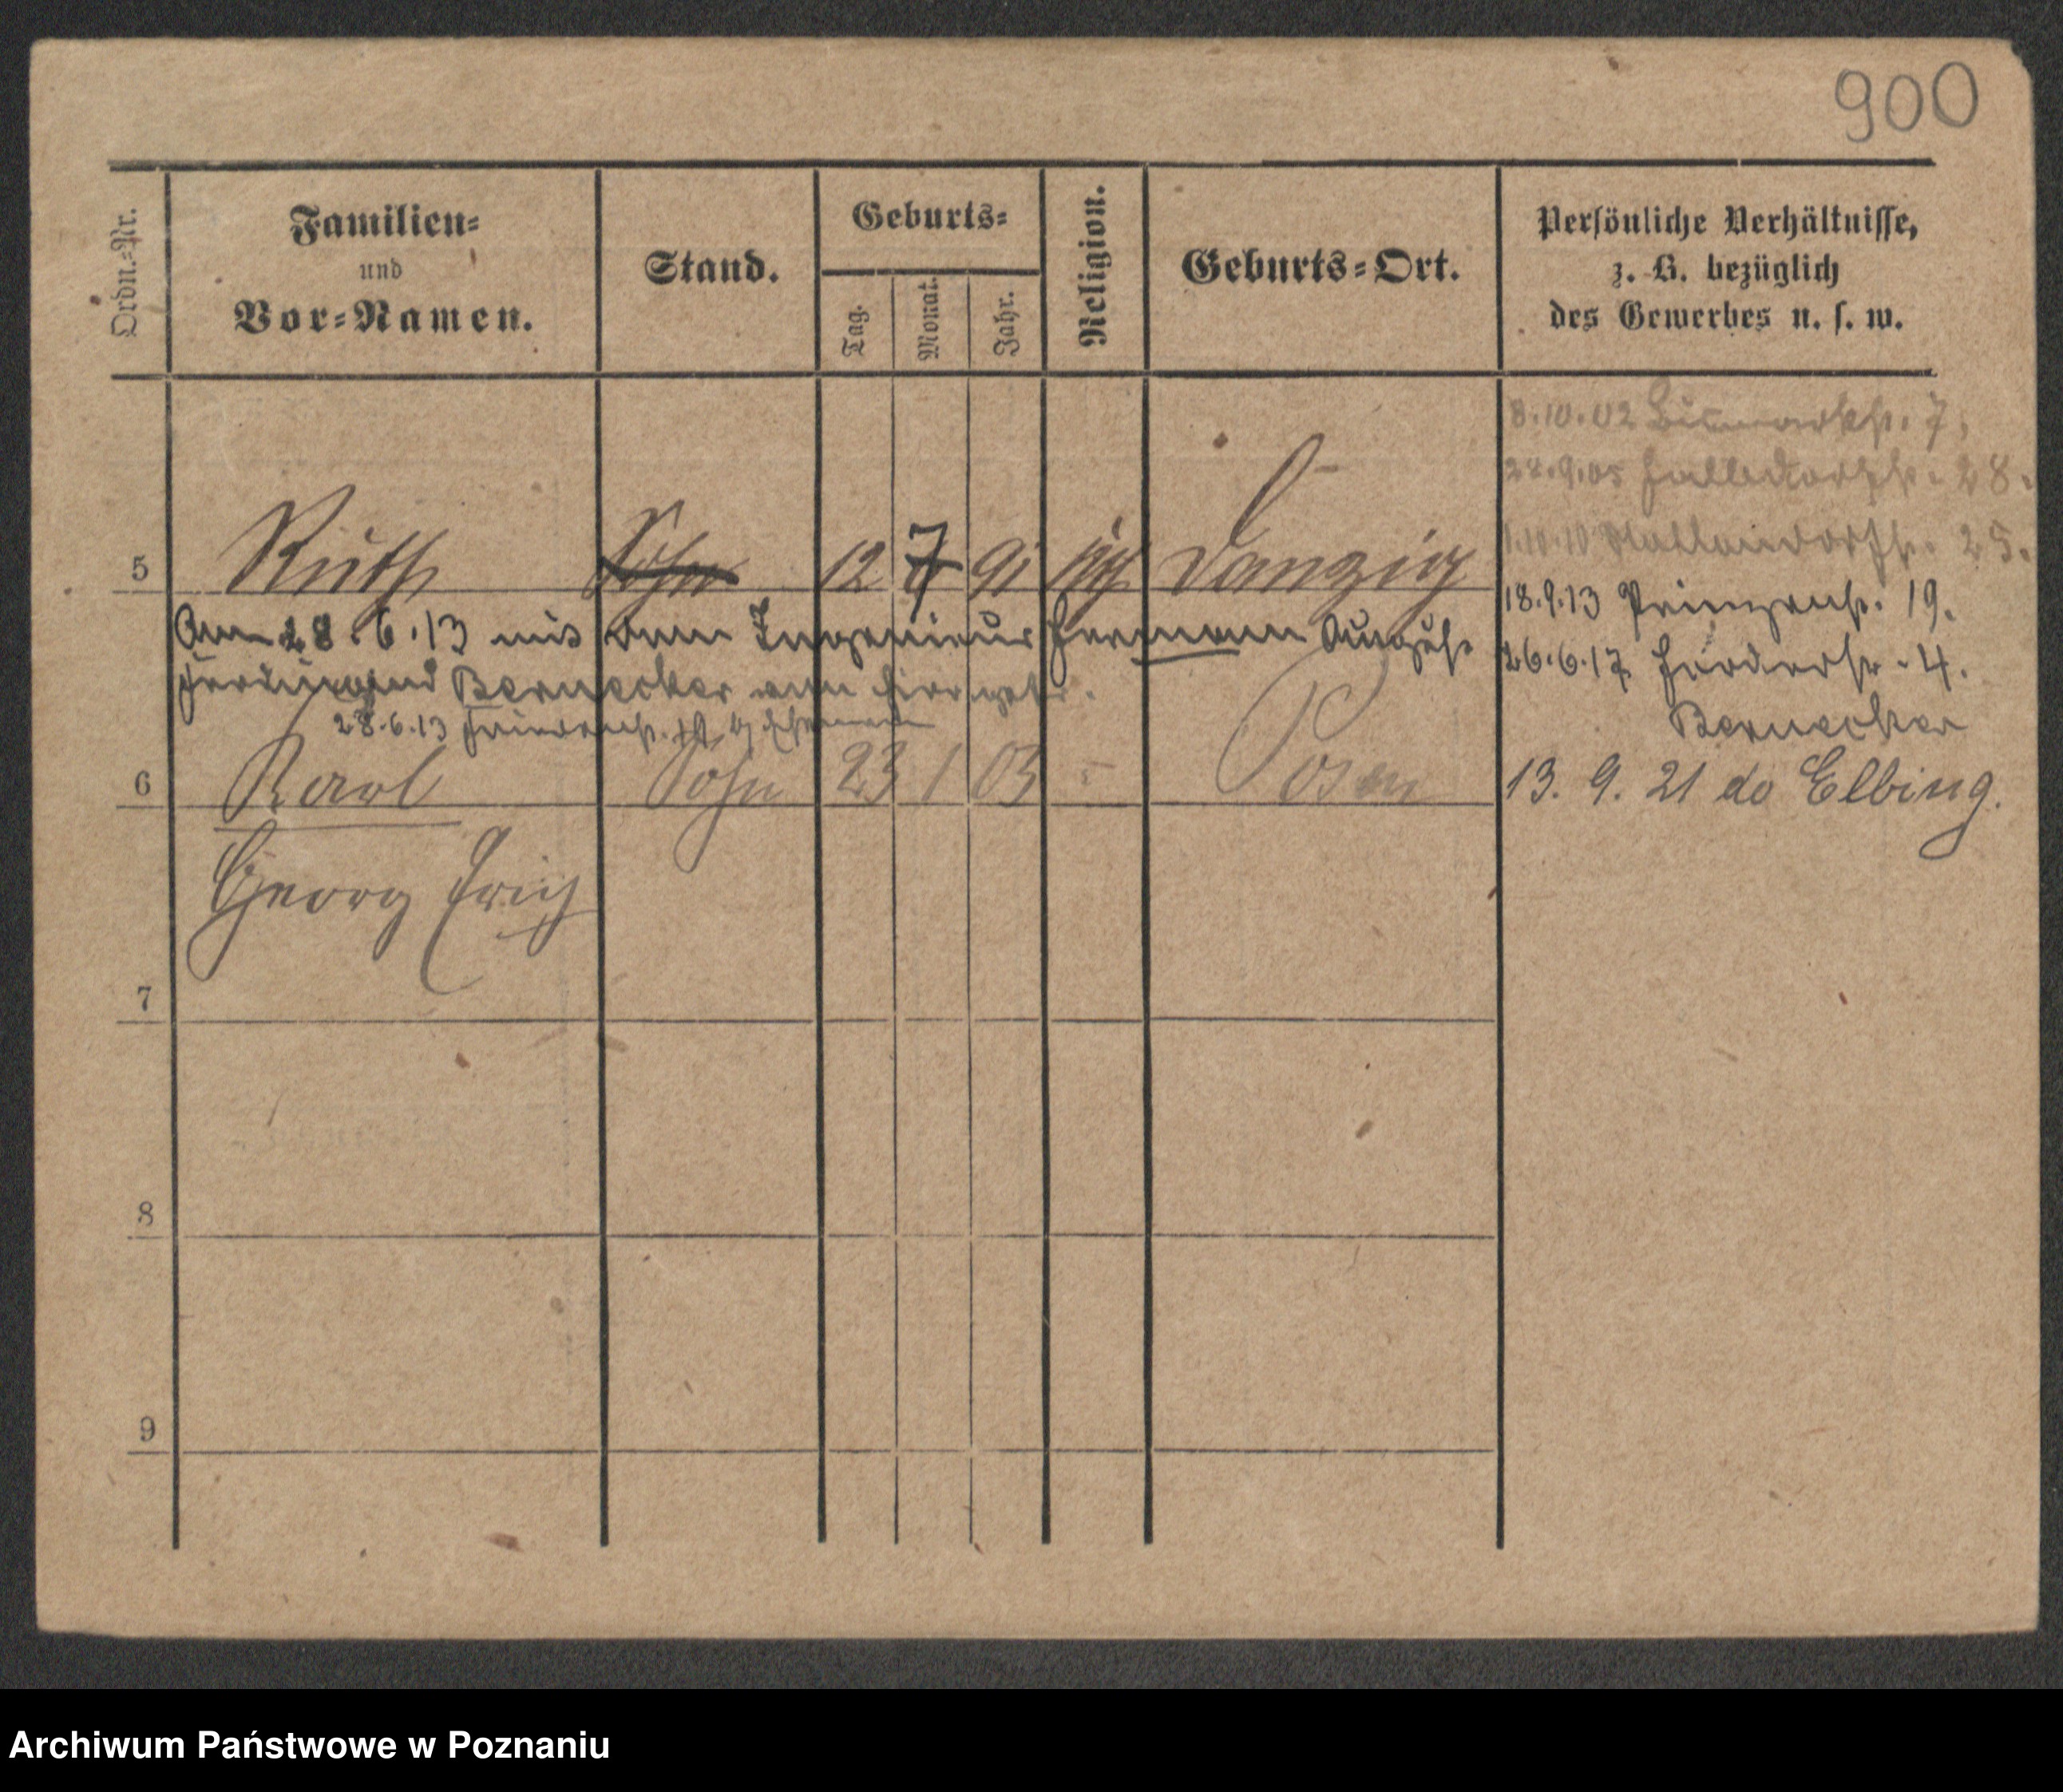 900
Ordn.-Nr.
Familien-
und
Vor-Namen.
Stand.
Geburts-
Tag.
Monat.
Jahr.
Religion.
Geburts-Ort.
Persönliche Verhältnisse,
z. B. bezüglich
des Gewerbes u. s. w.
8.10.02 Bismarckstr. 7.
28.9.05 28.
1.10.10 25.
5 Ruth Sohn 12 7 91 Danzig
18.9.13 Prinzenstr. 19.
Am 28.6.13 mit dem Ingenieur Hermann August
26.6.17 4.
Ferdinand Bernecker verheiratet.
Bernecker
28.6.13
6 Karl Sohn 23 1 03 - Posen
13. 9. 21 do Elbing.
Georg Erich
7
8
9
Archiwum Państwowe w Poznaniu